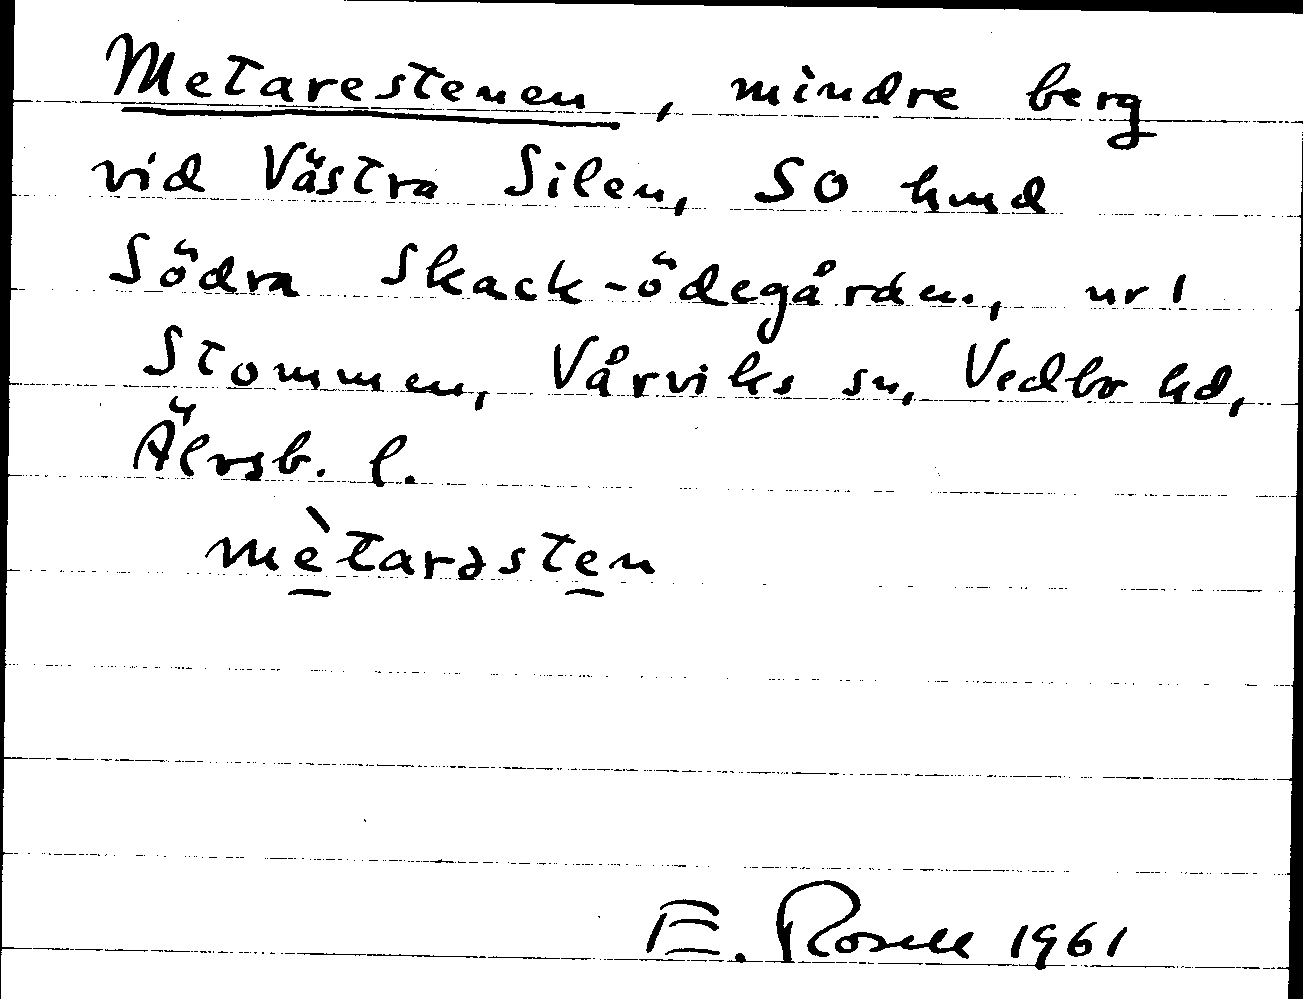 Metarestenen, mindre berg
vid Västra Silen, SO hmd
Södra Skack-ödegården, nr 1
Stommen, Vårviks sn, Vedbo hd,
Älvsb. l.
mètarəsten
E. Rosell 1961